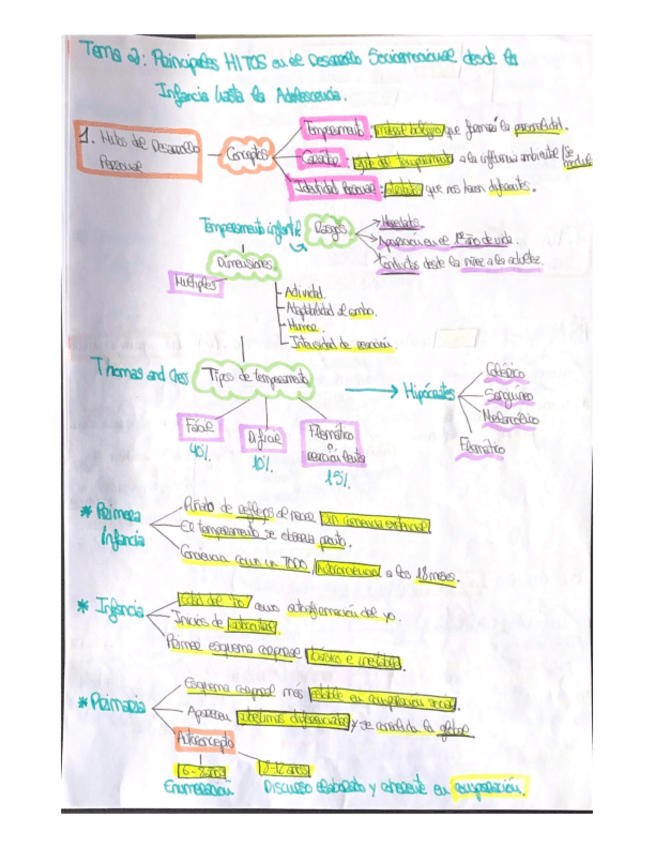 Tema 2: Principales HITOS en el Desarrollo Socioemocional desde la
Infancia hasta la Adolescencia.
1. Hitos del Desarrollo
Personal
Conceptos
Temperamento: base biológica que formará la personalidad.
Carácter: del temperamento a la influencia ambiental
Identidad Personal: que nos hacen diferentes.
Temperamento infantil
Rasgos
Heredado
Aparición en el 1er año de vida.
Conductas desde la niñez a la adultez.
Dimensiones
Múltiples
Actividad.
Adaptabilidad al cambio.
Humor.
Intensidad de reacción.
Thomas and Chess
Tipos de temperamento
Hipócrates
Colérico
Sanguíneo
Melancólico
Flemático
Fácil
40%
Difícil
10%
Flemático
o
reacción lenta
15%
* Primera
Infancia
de reflejos al nacer sin
El temperamento se observa pronto.
Conciencia como un TODO, Autoconciencia a los 18 meses.
* Infancia
Edad del "no" como autoafirmación del yo.
Inicios de
Primer esquema corporal básico e inestable.
* Primaria
Esquema corporal más estable en comparación social.
Aparecen autoestimas diferenciadas y se consolida la global.
Autoconcepto
6-8 años
8-12 años
Enumeración
Discurso elaborado y coherente en comparación.